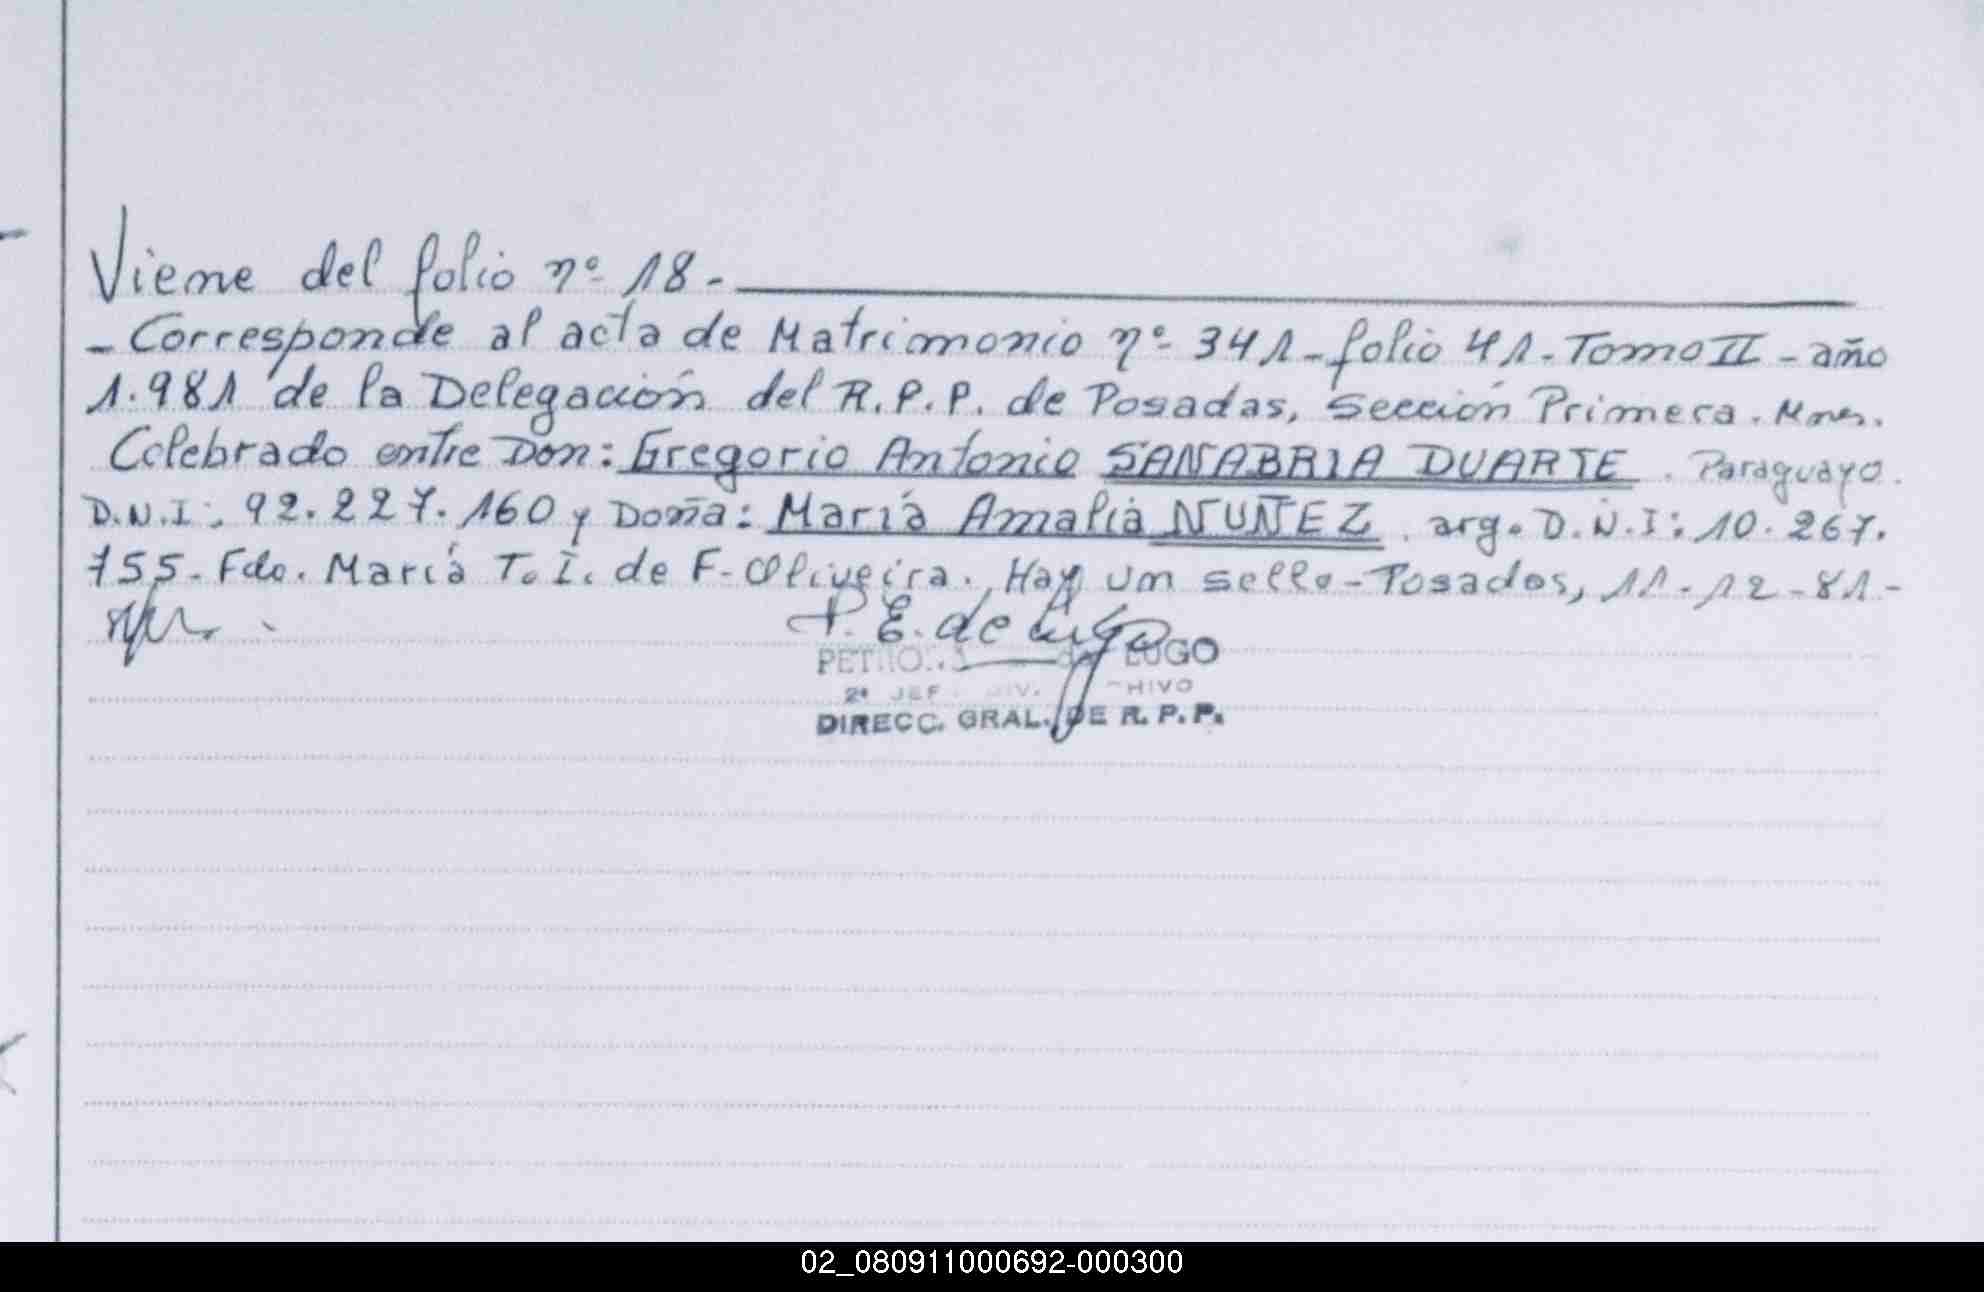 Viene del folio nº 18.-
- Corresponde al acta de Matrimonio nº 341-folio 41-Tomo II - año
1.981 de la Delegación del R.P.P. de Posadas, Sección Primera. Mnes.
Celebrado entre Don: Gregorio Antonio SANABRIA DUARTE. Paraguayo.
D.N.I: 92.227.160 y Doña: María Amalia NUÑEZ. arg. D.N.I: 10.267.
755.- Fdo. María T. I. de F- Oliveira. Hay un sello-Posadas, 11-12-81-
P. E. de Lugo
LUGO
2º JEF DIV. HIVO
DIRECC. GRAL. DE R. P. P.
02_080911000692-000300